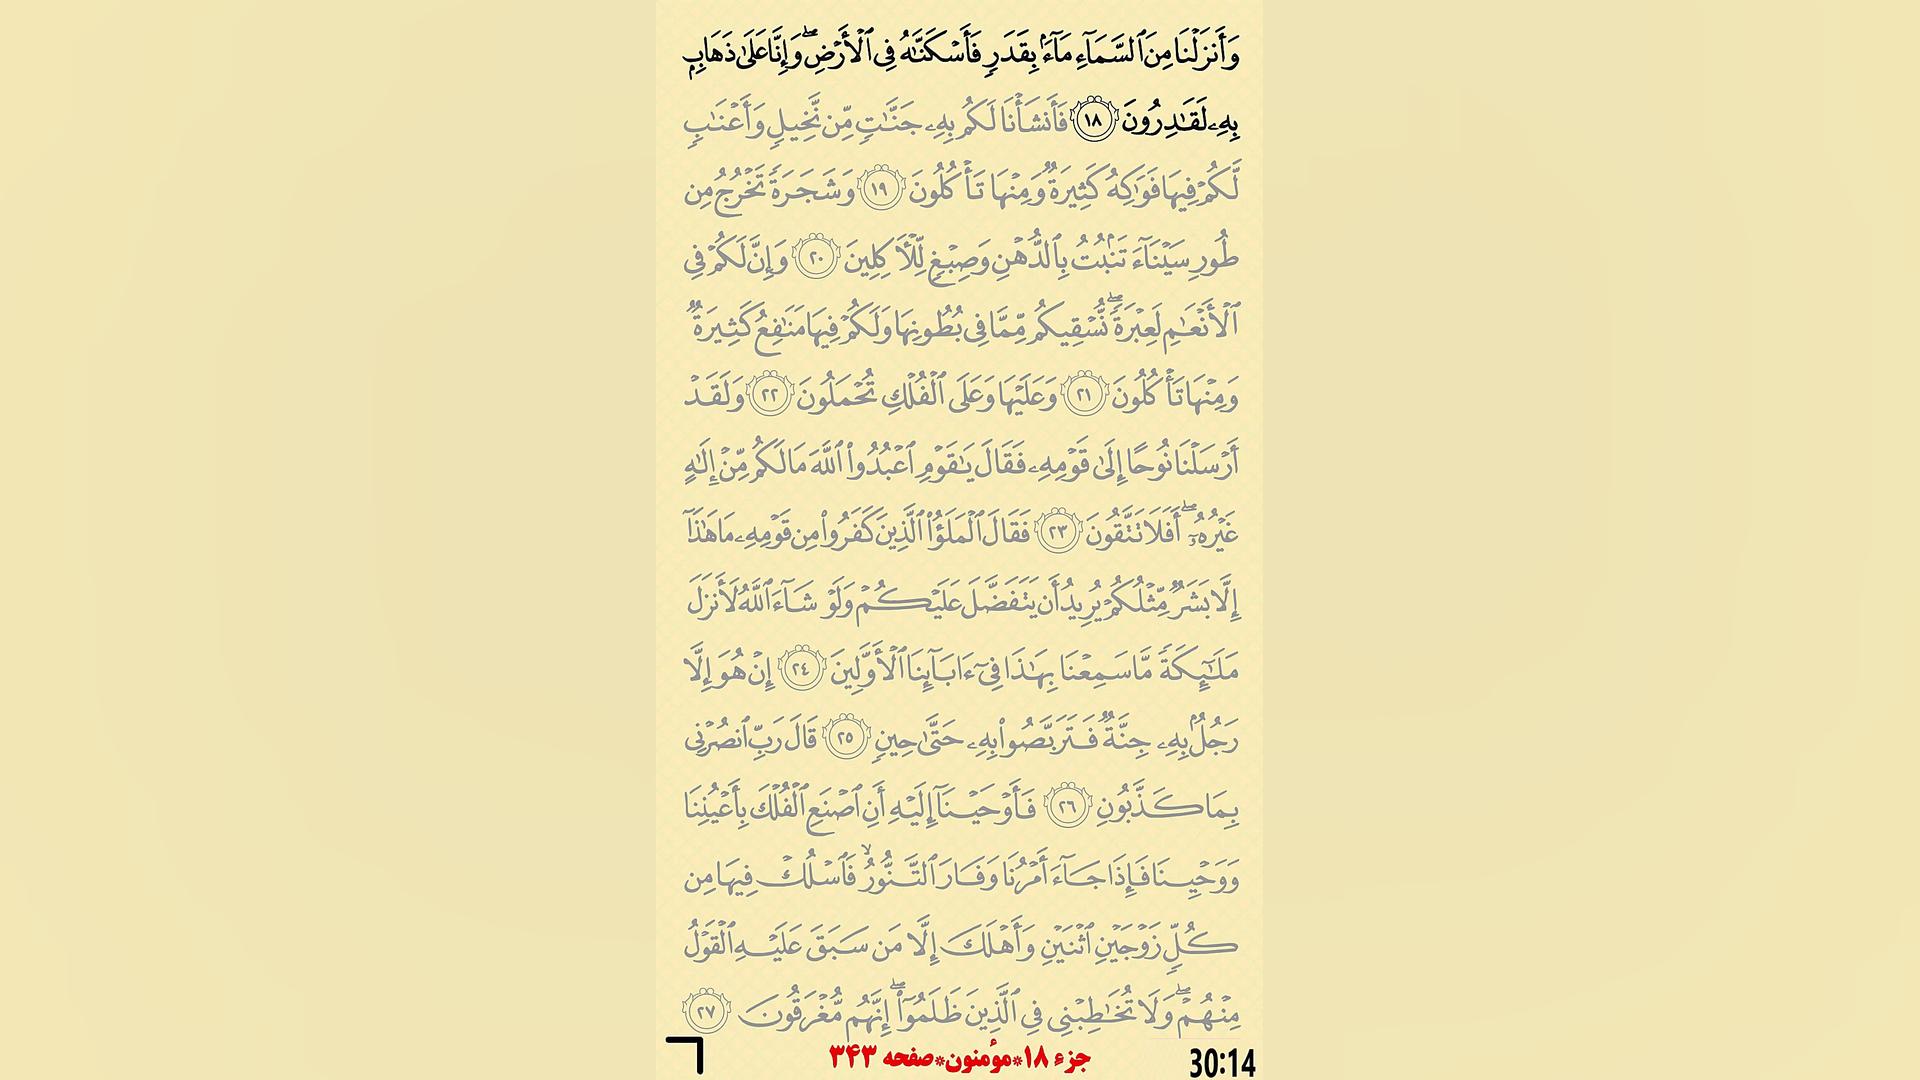 وَأَنزَلْنَا مِنَ ٱلسَّمَآءِ مَآءًۢ بِقَدَرٍ فَأَسْكَنَّٰهُ فِى ٱلْأَرْضِ ۖ وَإِنَّا عَلَىٰ ذَهَابٍۭ
بِهِۦ لَقَٰدِرُونَ ١٨ فَأَنشَأْنَا لَكُم بِهِۦ جَنَّٰتٍ مِّن نَّخِيلٍ وَأَعْنَٰبٍ
لَّكُمْ فِيهَا فَوَٰكِهُ كَثِيرَةٌ وَمِنْهَا تَأْكُلُونَ ١٩ وَشَجَرَةً تَخْرُجُ مِن
طُورِ سَيْنَآءَ تَنۢبُتُ بِٱلدُّهْنِ وَصِبْغٍ لِّلْأَٓكِلِينَ ٢٠ وَإِنَّ لَكُمْ فِى
ٱلْأَنْعَٰمِ لَعِبْرَةً ۖ نُّسْقِيكُم مِّمَّا فِى بُطُونِهَا وَلَكُمْ فِيهَا مَنَٰفِعُ كَثِيرَةٌ
وَمِنْهَا تَأْكُلُونَ ٢١ وَعَلَيْهَا وَعَلَى ٱلْفُلْكِ تُحْمَلُونَ ٢٢ وَلَقَدْ
أَرْسَلْنَا نُوحًا إِلَىٰ قَوْمِهِۦ فَقَالَ يَٰقَوْمِ ٱعْبُدُوا۟ ٱللَّهَ مَا لَكُم مِّنْ إِلَٰهٍ
غَيْرُهُۥٓ ۖ أَفَلَا تَتَّقُونَ ٢٣ فَقَالَ ٱلْمَلَؤُا۟ ٱلَّذِينَ كَفَرُوا۟ مِن قَوْمِهِۦ مَا هَٰذَآ
إِلَّا بَشَرٌ مِّثْلُكُمْ يُرِيدُ أَن يَتَفَضَّلَ عَلَيْكُمْ وَلَوْ شَآءَ ٱللَّهُ لَأَنزَلَ
مَلَٰٓئِكَةً مَّا سَمِعْنَا بِهَٰذَا فِىٓ ءَابَآئِنَا ٱلْأَوَّلِينَ ٢٤ إِنْ هُوَ إِلَّا
رَجُلٌۢ بِهِۦ جِنَّةٌ فَتَرَبَّصُوا۟ بِهِۦ حَتَّىٰ حِينٍ ٢٥ قَالَ رَبِّ ٱنصُرْنِى
بِمَا كَذَّبُونِ ٢٦ فَأَوْحَيْنَآ إِلَيْهِ أَنِ ٱصْنَعِ ٱلْفُلْكَ بِأَعْيُنِنَا
وَوَحْيِنَا فَإِذَا جَآءَ أَمْرُنَا وَفَارَ ٱلتَّنُّورُ ۙ فَٱسْلُكْ فِيهَا مِن
كُلٍّ زَوْجَيْنِ ٱثْنَيْنِ وَأَهْلَكَ إِلَّا مَن سَبَقَ عَلَيْهِ ٱلْقَوْلُ
مِنْهُمْ ۖ وَلَا تُخَٰطِبْنِى فِى ٱلَّذِينَ ظَلَمُوٓا۟ ۖ إِنَّهُم مُّغْرَقُونَ ٢٧
جزء ۱۸*مؤمنون*صفحه ۳۴۳
30:14